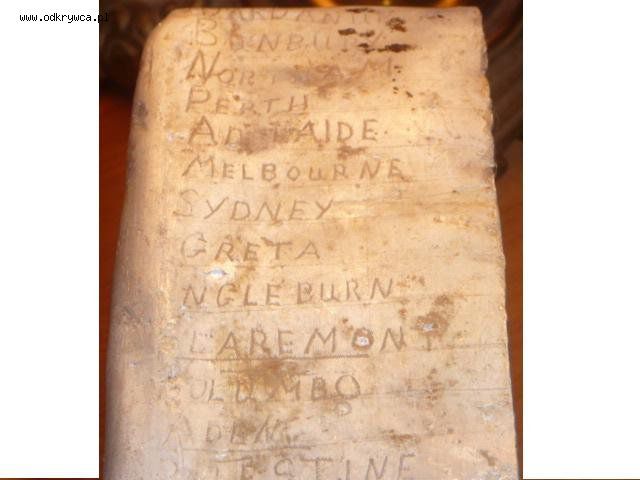 www.odkrywca.pl
BUNBURY
NORTHAM
PERTH
ADELAIDE
MELBOURNE
SYDNEY
GRETA
NGLEBURN
CLAREMONT
COLUMBO
ADEN